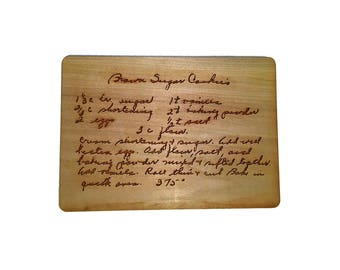 Brown Sugar Cookies
1 1/3 c br. sugar 1 t vanilla
2/3 c shortening 2 t baking powder
2 eggs 1/2 t salt
3 c flour
Cream shortening & sugar. Add well
beaten eggs. Add flour, salt, and
baking powder mixed & sifted together
Add vanilla. Roll thin & cut Bake in
quick oven. 375°